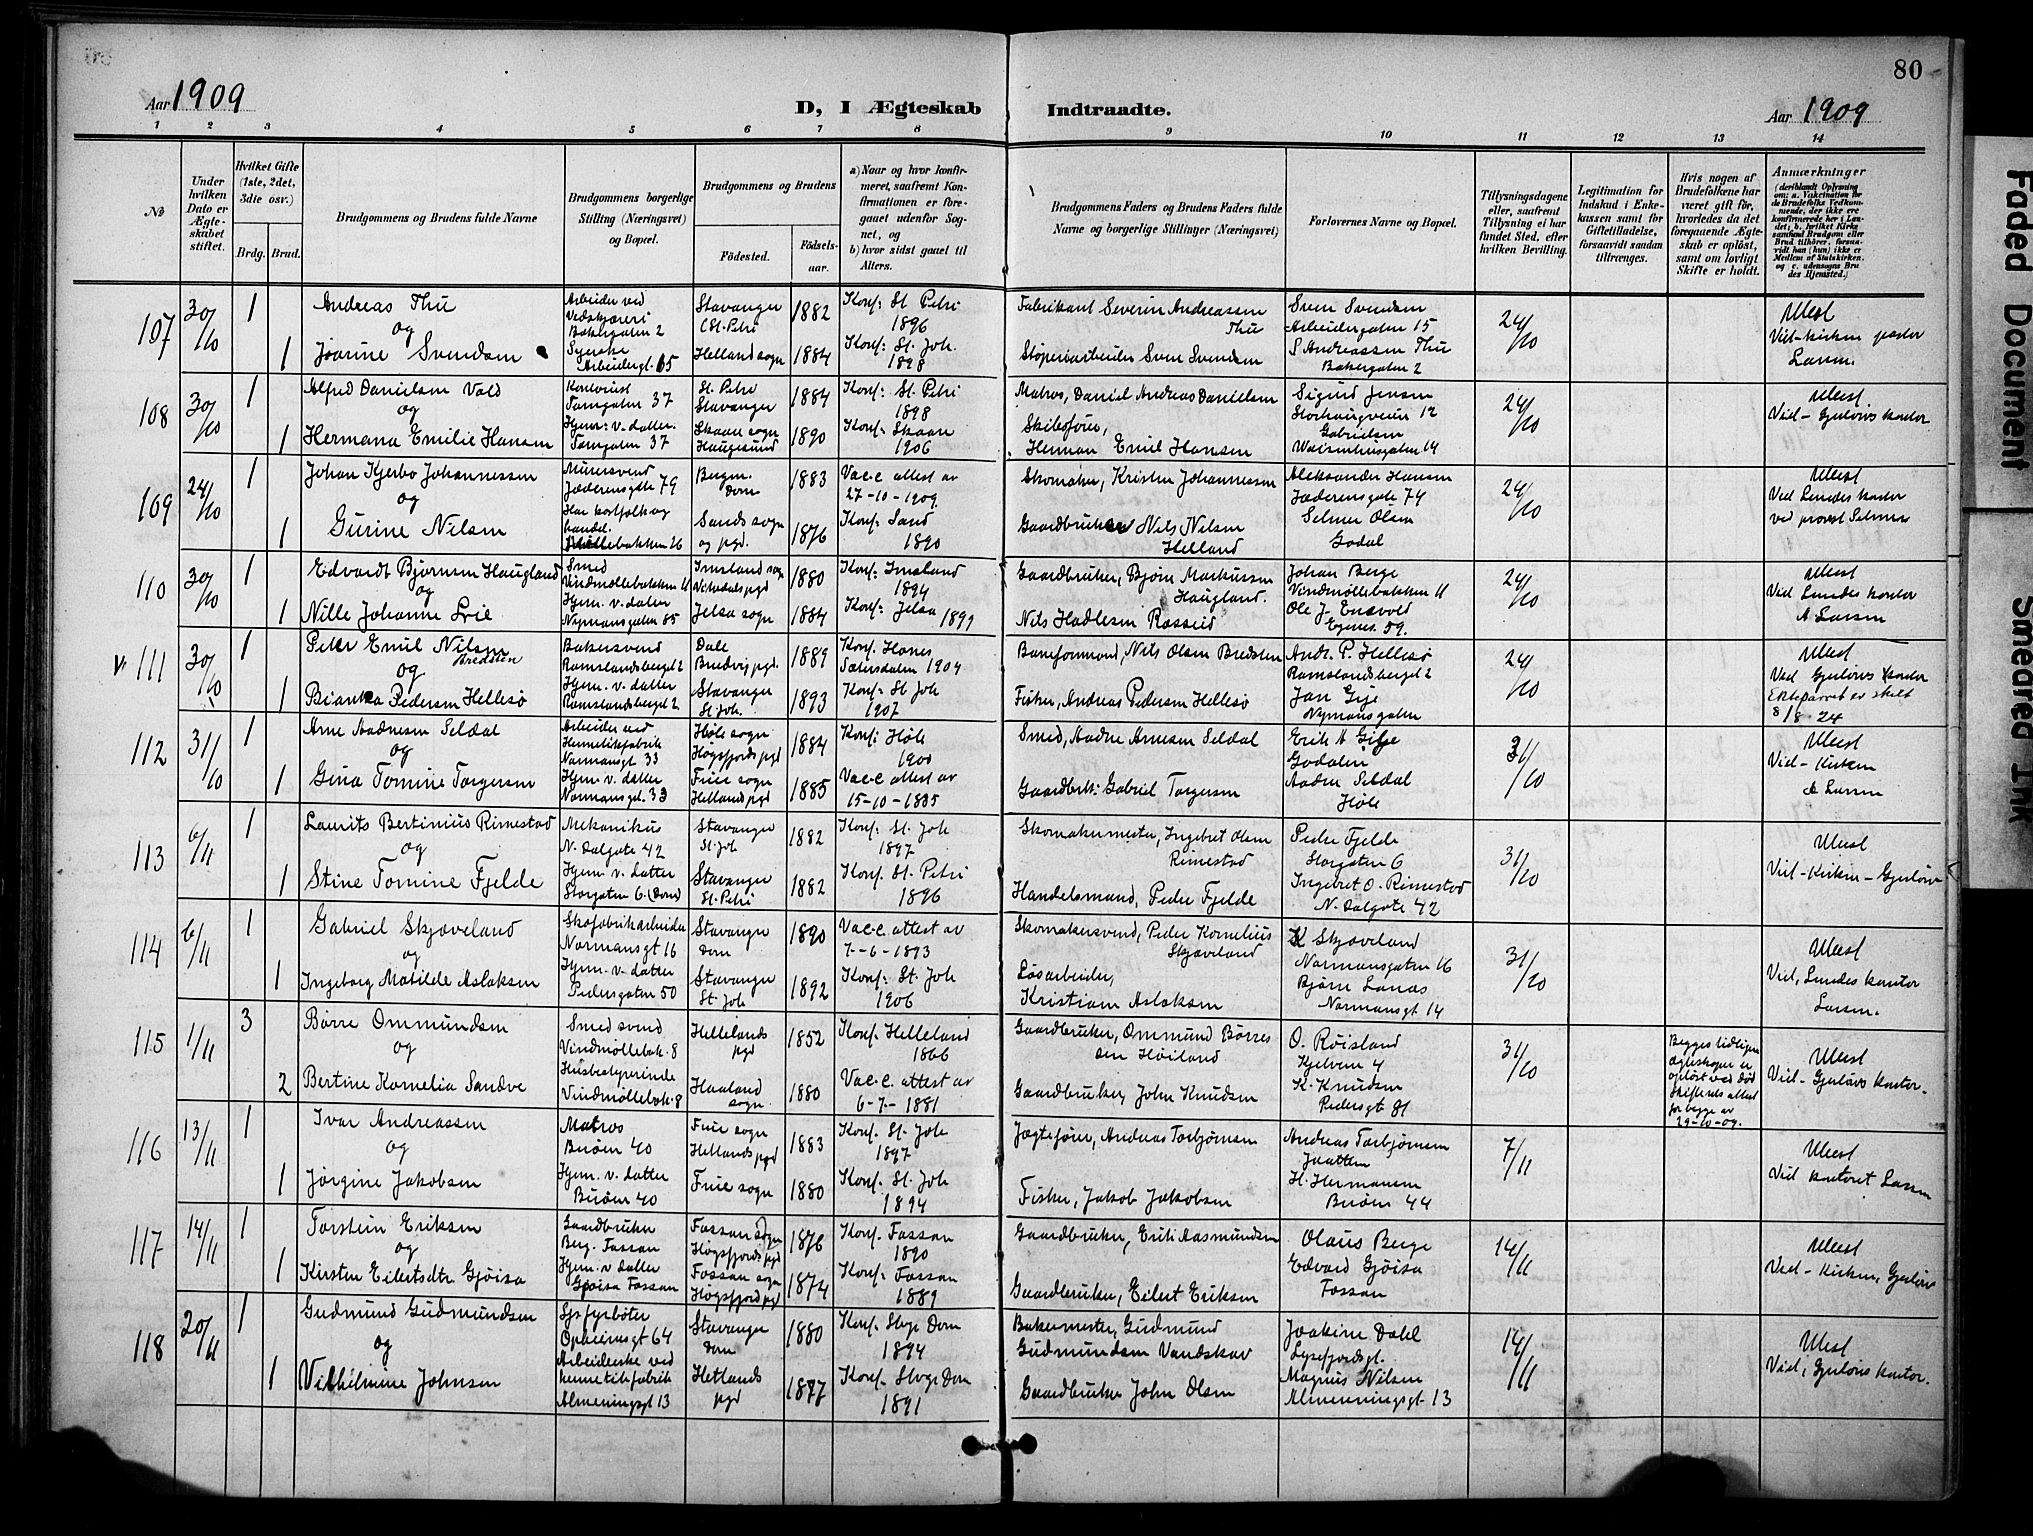 80
Aar 1909
D, I Ægteskab Indtraadte.
Aar 1909
1 2 3 4 5 6 7 8 9 10 11 12 13 14
No
Under hvilken Dato er Ægteskabet stiftet.
Hvilket Gifte (1ste, 2det, 3die osv.)
Brdg. Brud.
Brudgommens og Brudens fulde Navne
Brudgommens borgerlige Stilling (Næringsvei) og Bopæl.
Brudgommens og Brudens
Födested.
Födselsaar.
a) Naar og hvor konfirmeret, saafremt Konfirmationen er foregaaet udenfor Sognet, og
b) hvor sidst gaaet til Alters.
Brudgommens Faders og Brudens Faders fulde Navne og borgerlige Stillinger (Næringsvei)
Forlovernes Navne og Bopæl.
Tillysningsdagene eller, saafremt Tillysning ei har fundet Sted, efter hvilken Bevilling.
Legitimation for Indskud i Enkekassen samt for Giftetilladelse, forsaavidt saadan tiltrænges.
Hvis nogen af Brudefolkene har været gift før, hvorledes da det foregaaende Ægteskab er opløst, samt om lovligt Skifte er holdt.
Anmærkninger
107 30/10 1 Andreas Thu
og
1 Joarine Svendsen
Arbeider ved
Vedskjæreri
Bakergaten 2
Syerske
Arbeidergt. 65
Stavanger
(St. Petri
1882
Helland sogn 1884
Konf: St Petri
1896
Konf: St. Joh.
1898
Fabrikant Severin Andreassen
Thu
Støperiarbeider Sven Svendsen
Sven Svendsen
Arbeidergaten 15
S Andreassen Thu
Bakergaten 2
24/10
Viet
Larsen.
108 30/10 1 Alfred Danielsen Vold
og
1 Hermana Emilie Hansen
Kontorist
Tanngaten 37
Hjem: v. datter.
Tanngaten 37
St. Petri
Stavanger
1884
Skaare sogn
Haugesund
1890
Konf: St. Petri
1898
Konf: Skaare
1906
Matros, Daniel Andreas Danielsen
Skibsfører,
Herman Emil Hansen
Sigurd Jensen
Storhaugveien 12
Gabrielsen
24/10
Vied - Gjerløvs kontor
109 24/10 1 Johan Kjerbo Johannessen
og
1 Gurine Nilsen
Murersvend
Jæderensgate 79
Har kortfolk og
handel.
Møllebakken 26
Bergen
Dom
1883
Sands sogn
og pgd.
1876
Vac.c. attest av
27-10-1909.
Konf: Sand
1890
Skomaker, Kristen Johannessen
Gaardbruker Nils Nilsen
Helland
Aleksander Hansen
Jæderensgate 74
Selmer Olsen
Godal
24/10
Ved Lundes kontor
ved provst Selmer
110 30/10 1 Edvardt Bjørnsen Haugland
og
1 Nille Johanne Lrie
Smed
Vindmøllebakken 11
Hjem. v. datter
Nymansgaten 85
Imsland sogn
Vikedals pgd
1880
Jelsa sogn 1884
Konf: Imsland
1894
Konf: Jelsa 1899
Gaardbruker, Bjørn Markussen
Haugland.
Nils Hadlesen Rosseid
Johan Berge
Vindmøllebakken 11
24/10
Vied Lundes kontor
A Larsen
111 30/10 1 Peter Emil Nilsen
Bredsten
og
1 Bianka Pedersen Hellesø
Bakersvend
Ramslandsberget 2
Hjem. v. datter
Ramslandsberget 2
Dale
Bruvig pgd.
1889
Stavanger
St. Joh.
1893
Konf. Hones
Sætersdalen 1904
Konf: St Joh
1907
Baneformand, Nils Olsen Bredsten
Fisker, Andreas Pedersen Hellesø
Andr. P. Hellesø
Ramslandsberget 2
Jan Gije
Nymansgaten
24/10
Vied Gjerløvs kontor
Ekteparret er skilt
8/8-24
112 31/10 1 Arne Aadnesen Seldal
og
1 Gina Tomine Torgersen
Arbeider ved
Hermetikfabrik
Normansgt 33
Hjem v. datter
Normansgt. 33
Høle sogn
Høgsfjords pgd
1884
Frue sogn
Hetlands pgd
1885
Konf: Høle
1900
Vac.c attest av
15-10-1885
Smed, Aadne Arnesen Seldal
Gaardbrk: Gabriel Torgersen
Erik A Gilje
Godalen
Aadne Seldal
Høle
31/10
Vied - Kirken
A Larsen
113 6/11 1 Laurits Bertinius Rimestad
og
1 Stine Tomine Fjelde
Mekanikus
N. Dalgate 42
Hjem v. datter
Storgaten 6. (Dom)
Stavanger
St. Joh
1882
Stavanger
St. Petri
1882
Konf: St. Joh
1897
Konf. St. Petri
1896
Skomakermester, Ingebret Olsen
Rimestad
Handelsmand, Peder Fjelde
Peder Fjelde
Storgaten 6
Ingebret O. Rimestad
N. Dalgate 42
31/10
Vied - Kirken - Gjerløv
114 6/11 1 Gabriel Skjæveland
og
1 Ingeborg Matilde Aslaksen
Skofabrikarbeider
Normansgt 16
Hjem. v. datter
Pedersgaten 50
Stavanger
Dom
1890
Stavanger
St. Joh
1892
Vac.c. attest av
7-6-1893
Konf: St. Joh
1906
Skomakersvend, Peder Kornelius
Skjæveland
Løsarbeider,
Kristian Aslaksen
K Skjæveland
Normansgaten 16
Bjørn Lonas
Normansgt 14
31/10
Vied, Lundes kontor
Larsen.
115 1/11 3 Børre Ommundsen
og
2 Bertine Kornelia Sandve
Smedsvend
Vindmøllebak. 8
Husbestyrerinde
Vindmøllebak. 8
Hellelands
pgd
1852
Haaland
sogn
1880
Konf. Helleland
1866
Vac.c. attest av
6-7-1881
Gaardbruker, Ommund Børresen Høiland
Gaardbruker John Knudsen
O. Røisland
Kjelvene 4
K. Knudsen
Pedersgt 81
31/10
Begges tidligere
ægteskaper er
opløst ved død
Skifterets attest
for begge av
29-10-09.
Vied - Gjerløvs kontor.
116 13/11 1 Ivar Andreassen
og
1 Jørgine Jakobsen
Matros
Buøen 40
Hjem. v. datter
Buøen 40
Frue sogn
Hetlands pgd
1883
Frue sogn 1880
Konf. St. Joh
1897
Konf. St. Joh
1894
Jægtefører, Andreas Torbjørnsen
Fisker, Jakob Jakobsen
Andreas Torbjørnsen
Jaatten
H. Hermansen
Buøen 44
7/11
Vied kontoret Larsen
117 14/11 1 Torstein Eriksen
og
1 Kirsten Eilertsdtr Gjøisa
Gaardbruker
Berg. Fossan
Hjem. v datter
Gjøisa Fossan
Fossan sogn
Høgsfjords pgd
1876
Fossan sogn
Høgsfjord pgd
1874
Konf. Fossan
1890
Konf: Fossan
1889
Gaardbruker, Erik Aasmundsen
Gaardbruker, Eilert Eriksen
Olaus Berge
Edvard Gjøisa
Fossan
14/11
Vied - Kirken, Gjerløv
118 20/11 1 Gudmund Gudmundsen
og
1 Vilhilmine Johnsen
Opheimsgt 64
Arbeiderske ved
hermetikfabrik
Almeningsgt 13
Stavanger
Dom
1880
Hetlands
pgd
1877
Konf. Stvgr Dom
1894
Konf. Stvgr Dom
1891
Bakermester, Gudmund
Gudmundsen Vandskav
Gaardbruker John Olsen
Joakine Dahl
Lysefjordsgt.
Magnus Nilsen
Almenningsgt. 13
14/11
Vied, Gjerløvs kontor.
Faded Document
Smeared Ink